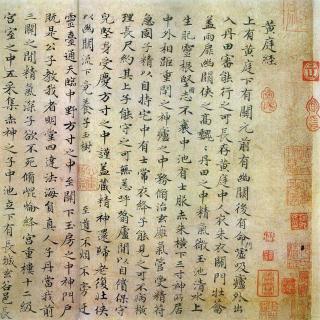 黃庭經
上有黃庭下有關元前有幽闕後有命門噓吸廬外出
入丹田審能行之可長存黃庭中人衣朱衣關門壯籥
蓋兩扉幽闕俠之高巍巍丹田之中精氣微玉池清水上
生肥靈根堅志不衰中池有士服赤朱橫下三寸神所居
中外相距重閉之神廬之中務脩治玄雍氣管受精符
急固子精以自持宅中有士常衣絳子能見之可不病橫
理長尺約其上子能守之可無恙呼噏廬間以自償保守
兒堅身受慶方寸之中謹蓋藏精神還歸老復壯俠
以幽關流下竟養子玉樹 至道不煩不旁迕
靈臺通天臨中野方寸之中至關下玉房之中神門戶
既是公子教我者明堂四達法海員真人子丹當我前
三關之間精氣深子欲不死脩崐崘絳宮重樓十二級
宮室之中五采集赤神之子中池立下有長城玄谷邑長